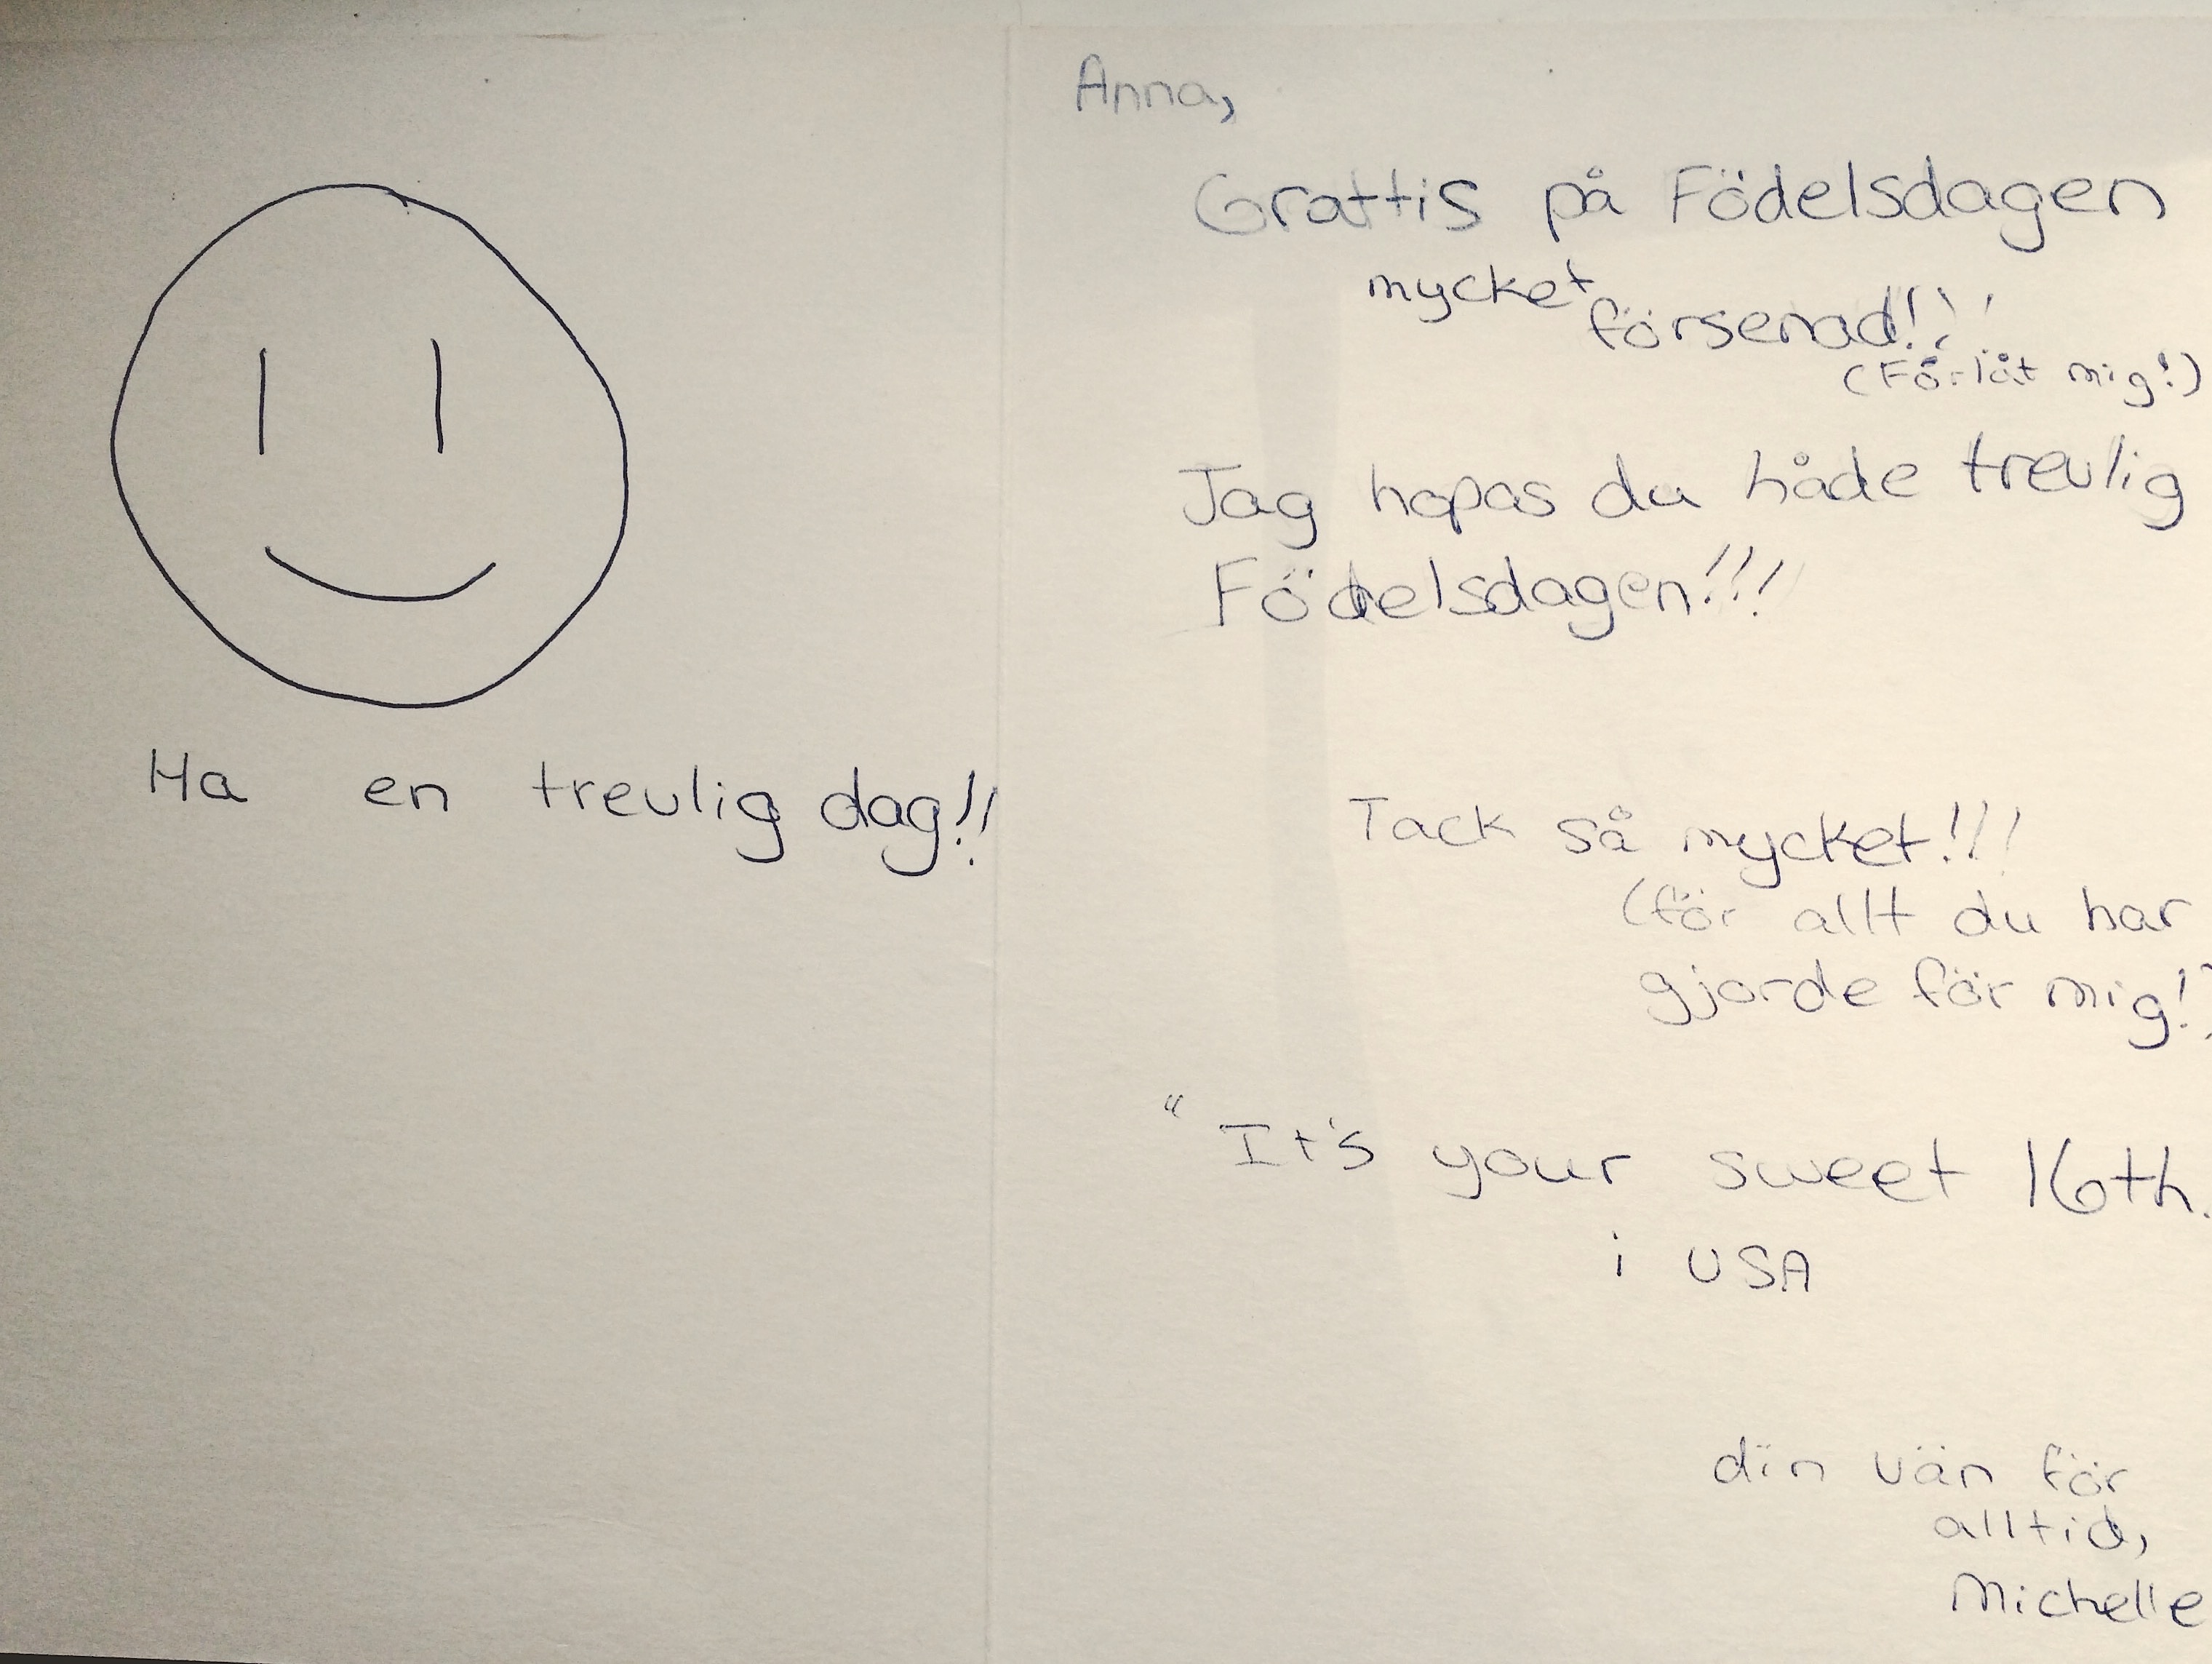 Ha en treulig dag!!
Anna,
Grattis på Födelsdagen
mycket
försenad!!!
(Förlåt mig!)
Jag hopas du håde treulig
Födelsdagen!!!
Tack så mycket!!!
(för allt du har
gjorde för mig!)
"It's your sweet 16th.
i USA
din vän för
alltid,
Michelle